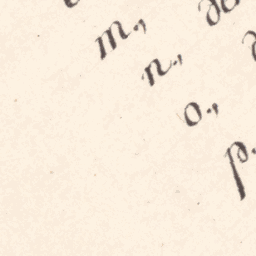 m.,
n.,
o.,
p.